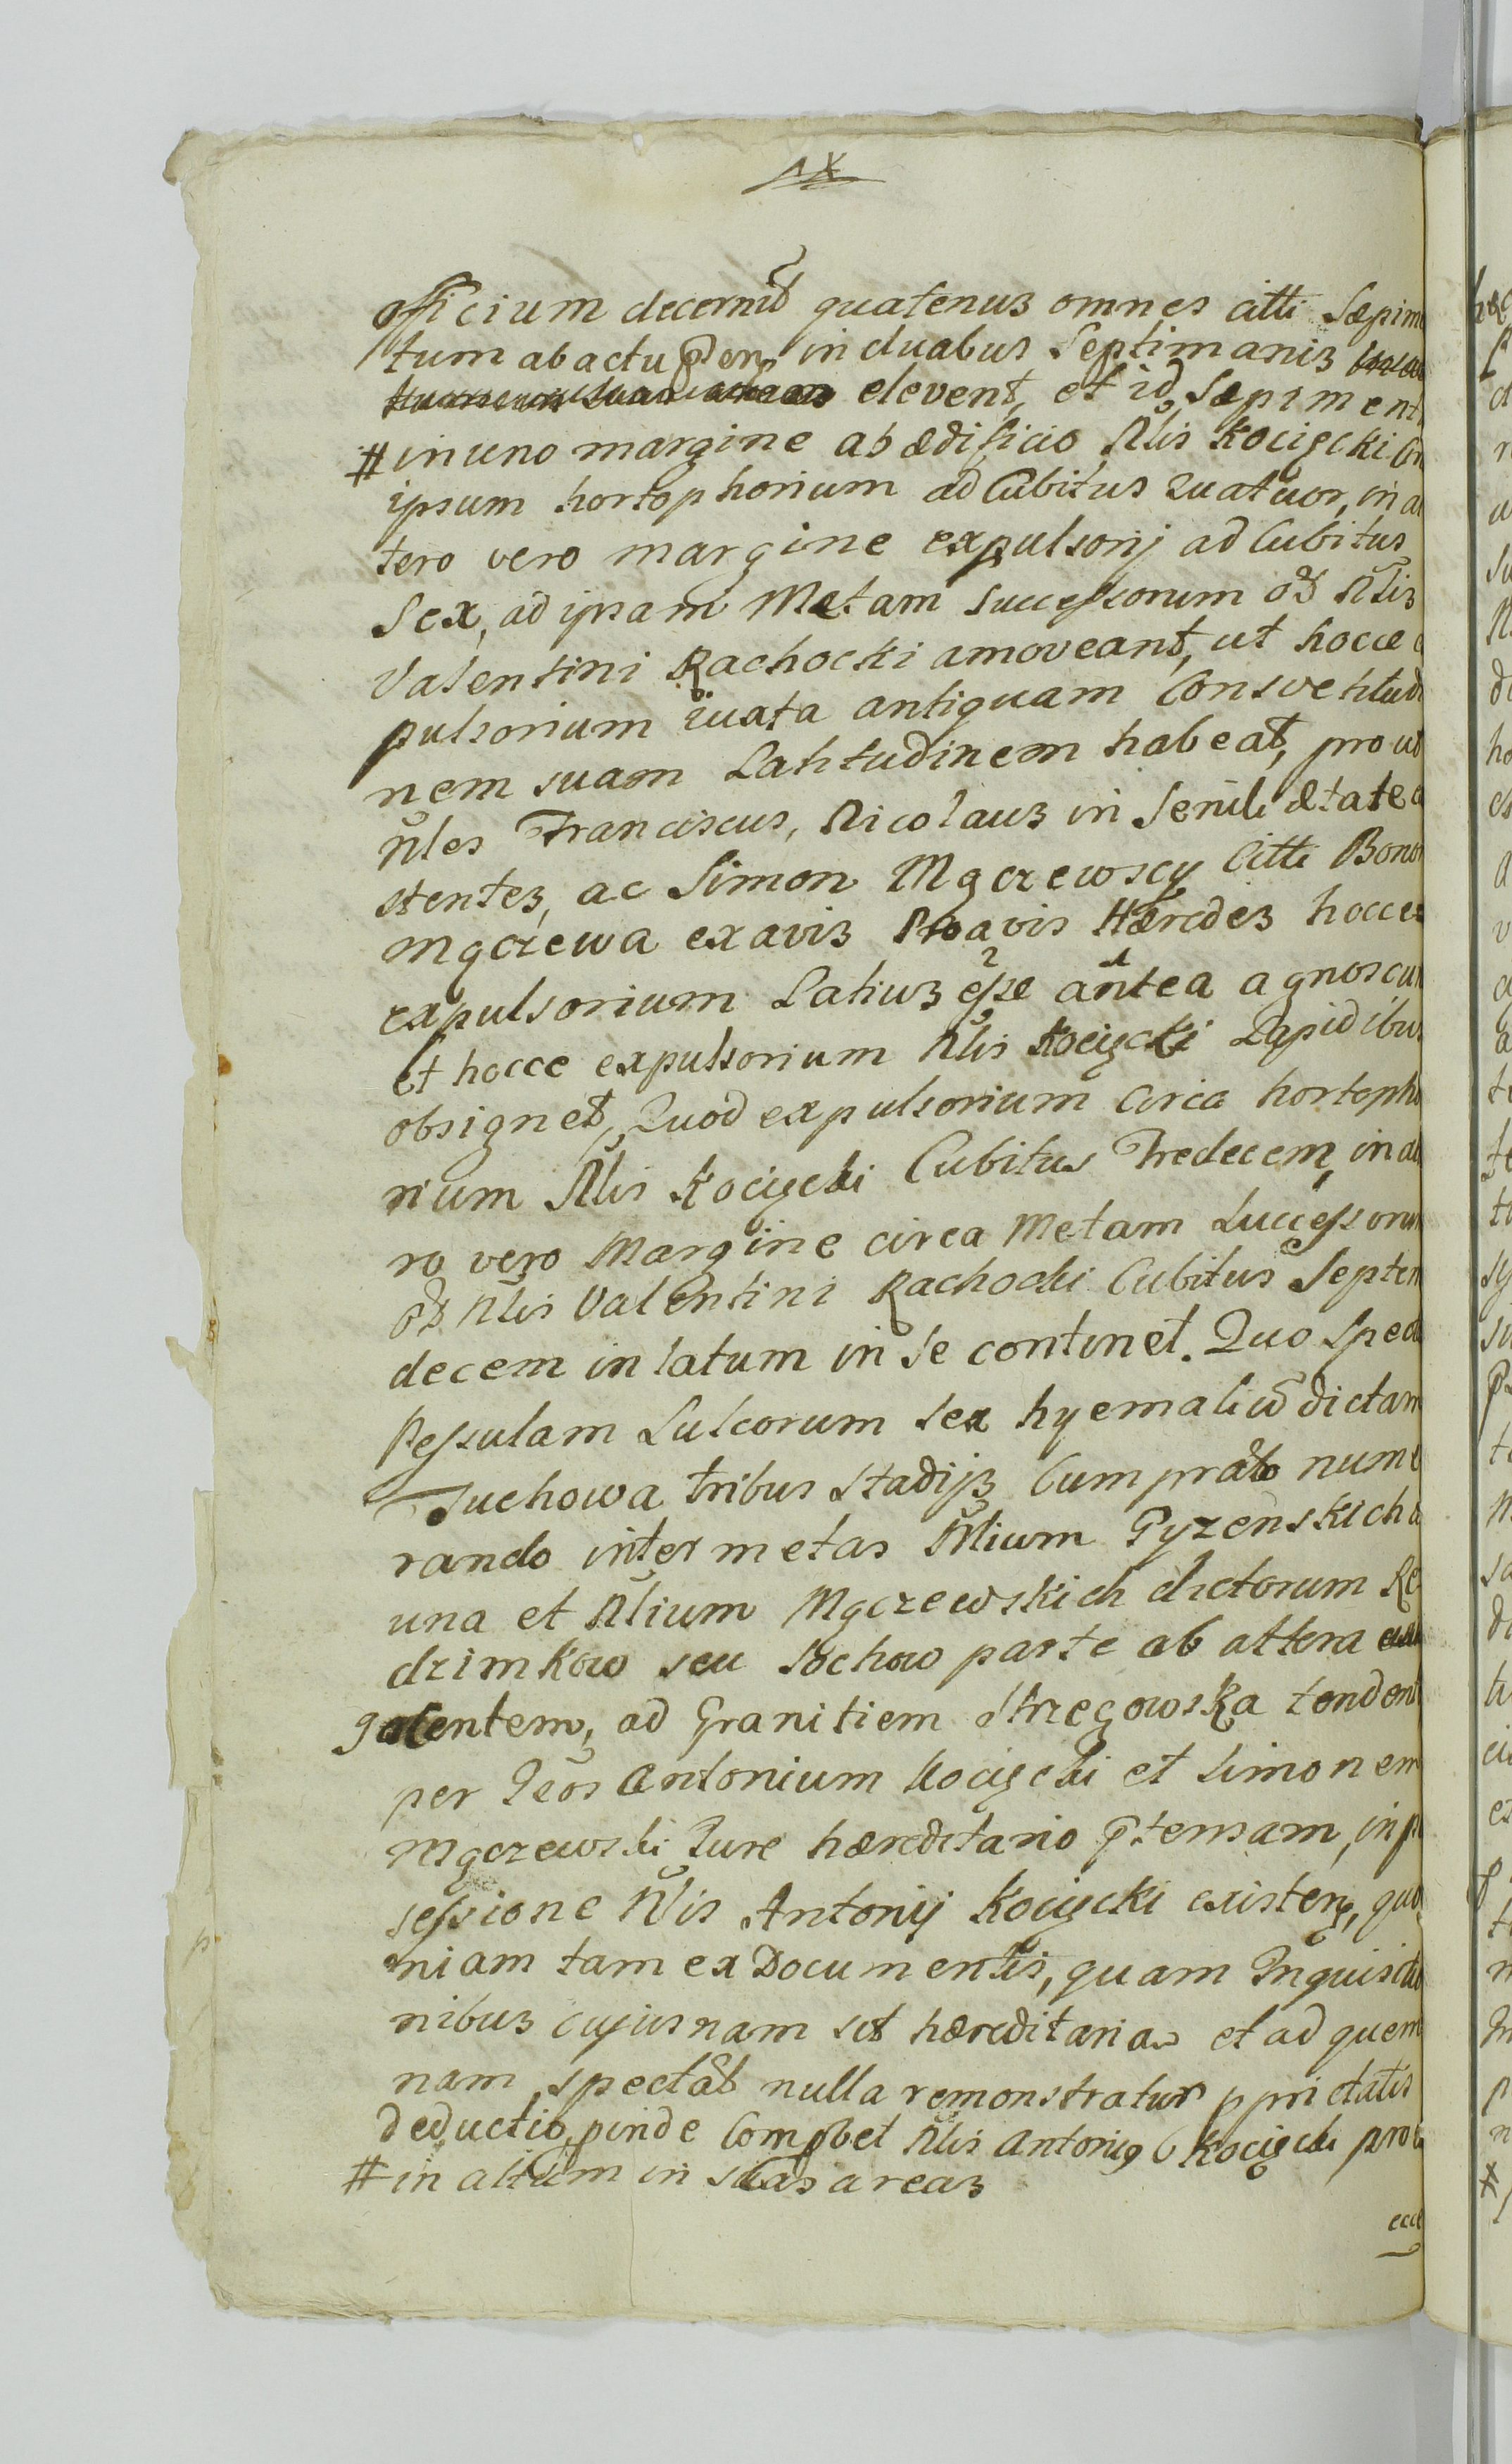 officium decernit quatenus omnes citti Sæpim
tum ab actu pñn in duabus Septimanis
elevent, et id Sæpiment
# in uno margine ab ædificio Nlis Kocięcki
ipsum hortophorium ad Cubitus Quatuor, in al
tero vero margine expulsorij ad Cubitus
Sex, ad ipsam Metam Successorum Nlis
Valentini Rachocki amoveant, ut hocce
pulsorium iuxta antiquam Consvetudi
nem suam Latitudinem habeat, prout
Nles Franciscus, Nicolaus in Senili ætate
stentes, ac Simon Mączewscy Citti Bono
Mączewa ex avis Proavis Hæredes hocce
expulsorium Latius esse antea agnoscun
Et hocce expulsorium Nlis Kocięcki Lapidibus
obsignet, Quod expulsorium Circa hortopho
rium Nlis Kocięcki Cubitus Tredecem, in al
ro vero Margine circa Metam Successorum
Nlis Valentini Rachocki Cubitus Septem
decem in latum in se continet. Quo Spect
Pessulam Sulcorum sex hyemaliū dictam
Suchowa tribus Stadijs Cum prato nume
rando inter metas Nlium Gyzenskich a
una et Nlium Mączewskich dictorum Ke
dzimkow seu Sochow parte ab altera
jacentem, ad Granitiem Strzegowska tendent
per Gēos Antonium Kocięcki et Simonem
Mączewski Jure hæreditario ptensam, in po
sessione Nlis Antonij Kocięcki existen, quo
niam tam ex Documentis, quam Inquisitio
nibus cujusnam sit hæreditaria et ad quem
nam spectat nulla remonstratur pprietatis
deductio, pinde Compbet Nlis Antonius Kocięcki pro
# in altum in suas areas
ecce